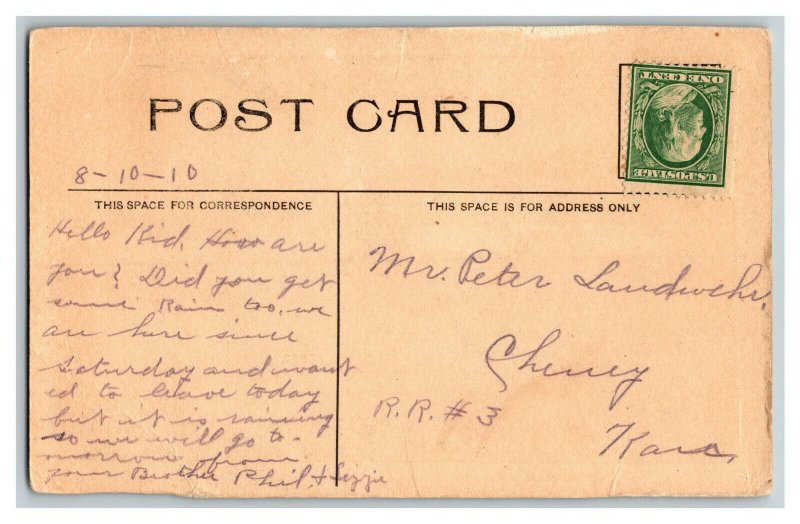 POST CARD
ONE CENT
U.S. POSTAGE
8-10-10
THIS SPACE FOR CORRESPONDENCE
Hello Kid. How are
you? Did you get
some Rain too, we
are here since
Saturday and want
ed to leave today
but it is raining
so we will go to-
morrow from
your Brother Phil. & Lizzie
THIS SPACE IS FOR ADDRESS ONLY
Mr. Peter Landwehr.
Cheney
R.R. # 3
Kans.